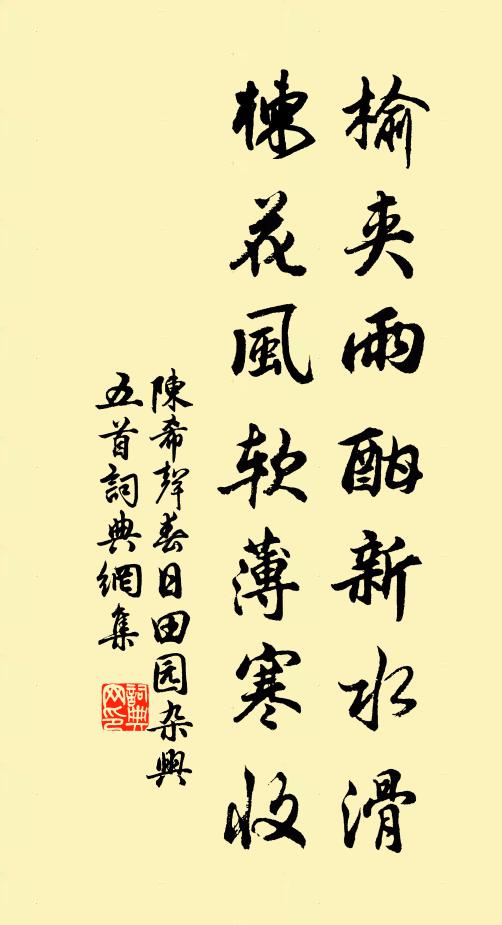 榆夹雨酣新水滑
楝花風软薄寒收
陳希聲春日田园杂興
五首詞典網集
詞典网印